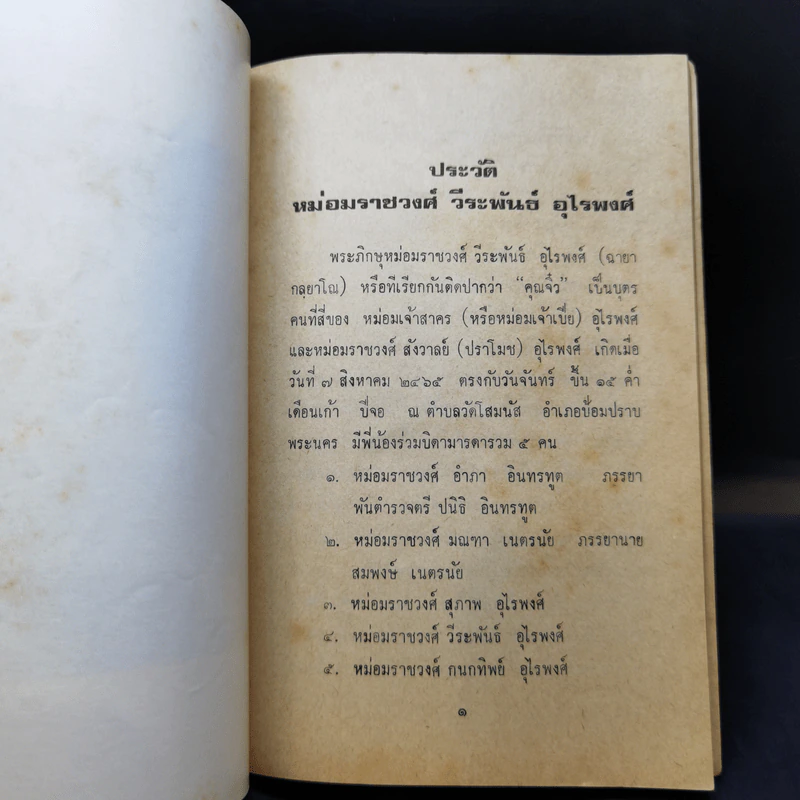 ประวัติ
หม่อมราชวงศ์ วีระพันธ์ อุไรพงศ์
พระภิกษุหม่อมราชวงศ์ วีระพันธ์ อุไรพงศ์ (ฉายา
กลฺยาโณ) หรือที่เรียกกันติดปากว่า “คุณจิ๋ว” เป็นบุตร
คนที่สี่ของ หม่อมเจ้าสาคร (หรือหม่อมเจ้าเบี้ย) อุไรพงศ์
และหม่อมราชวงศ์ สังวาลย์ (ปราโมช) อุไรพงศ์ เกิดเมื่อ
วันที่ ๗ สิงหาคม ๒๔๖๕ ตรงกับวันจันทร์ ขึ้น ๑๕ ค่ำ
เดือนเก้า ปีจอ ณ ตำบลวัดโสมนัส อำเภอป้อมปราบ
พระนคร มีพี่น้องร่วมบิดามารดารวม ๕ คน
๑. หม่อมราชวงศ์ อำภา อินทรทูต ภรรยา
พันตำรวจตรี ปนิธิ อินทรทูต
๒. หม่อมราชวงศ์ มณฑา เนตรนัย ภรรยานาย
สมพงษ์ เนตรนัย
๓. หม่อมราชวงศ์ สุภาพ อุไรพงศ์
๔. หม่อมราชวงศ์ วีระพันธ์ อุไรพงศ์
๕. หม่อมราชวงศ์ กนกทิพย์ อุไรพงศ์
๑